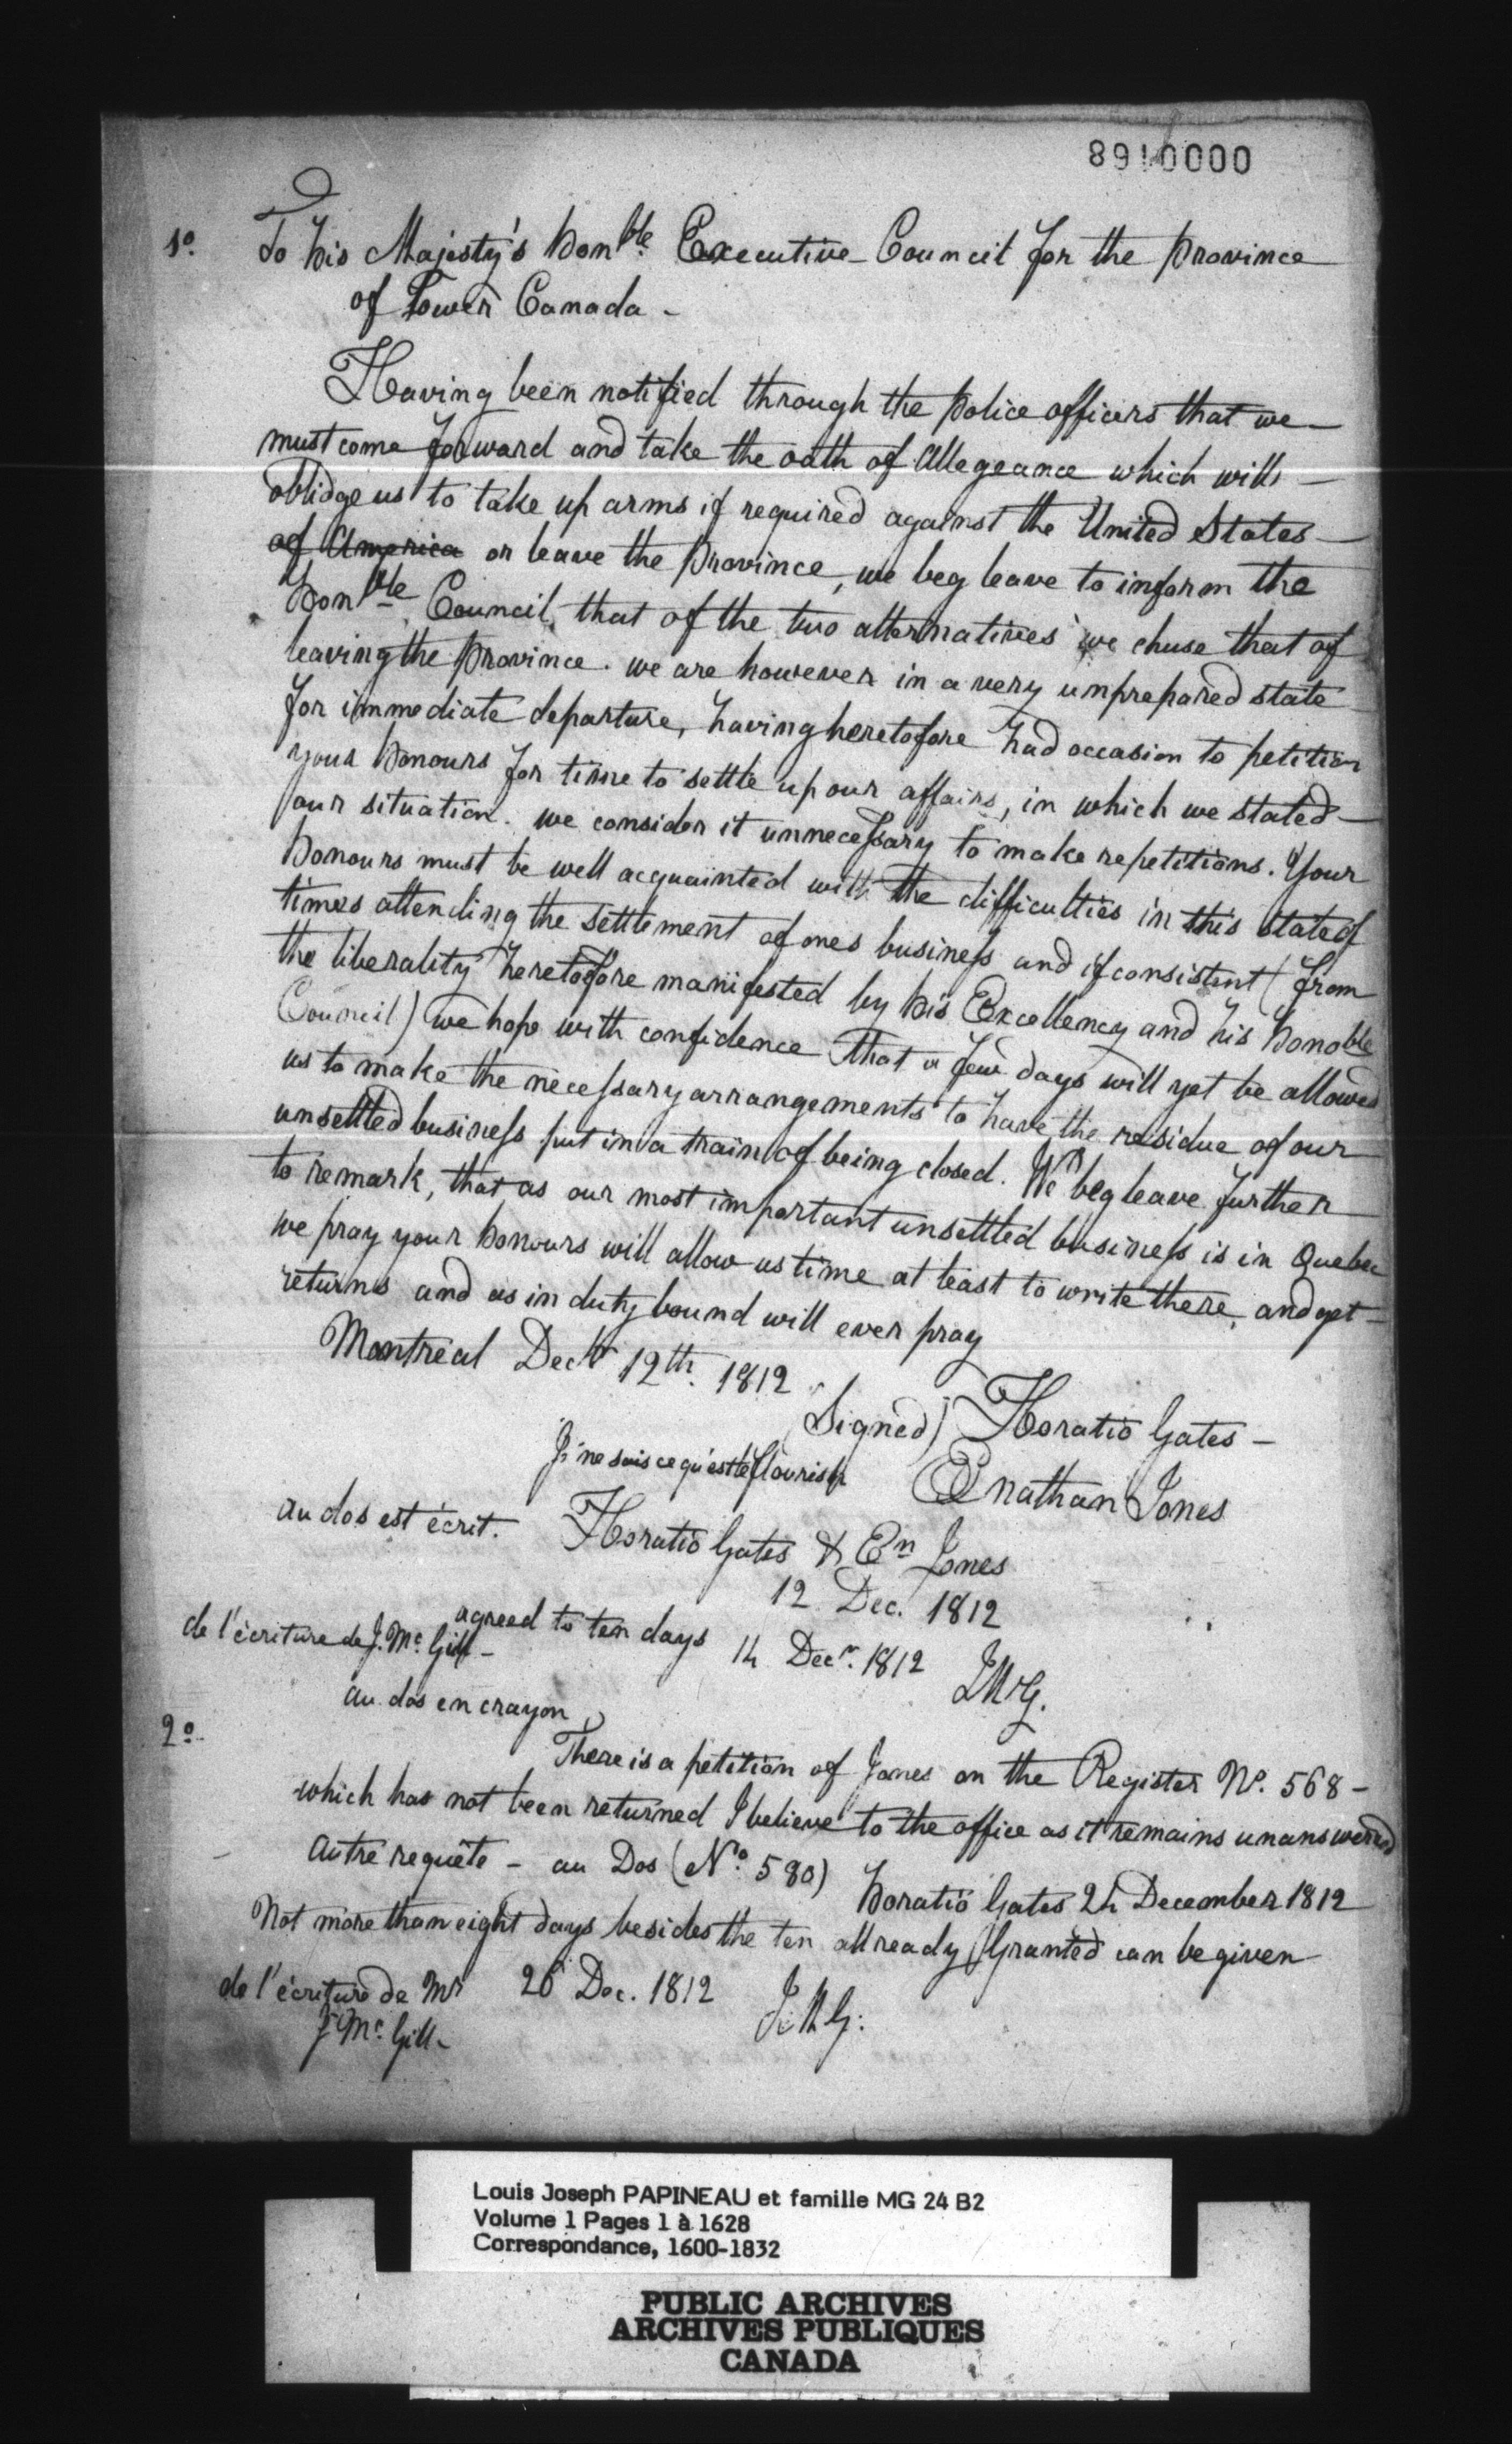 0000168
1º. To his Majesty's Honble Executive Council for the province
of Lower Canada -
Having been notified through the police officers that we
must come forward and take the oath of Allegeance which will
oblidge us to take up arms if required against the United States
of America or leave the province, we beg leave to inform the
Honble Council, that of the two alternatives we chuse that of
leaving the province. we are however in a very unprepared state
for immediate departure, having heretofore had occasion to petition
your honours for time to settle up our affairs, in which we stated
our situation. we consider it unnecessary to make repetitions. Your
honours must be well acquainted with the difficulties in this state of
times attending the settlement of ones business and if consistent (from
the liberality heretofore manifested by his Excellency and his honoble
Council) we hope with confidence that a few days will yet be allowed
us to make the necessary arrangements to have the residue of our
unsettled business put in a train of being closed. We beg leave further
to remark, that as our most important unsettled business is in Quebec
we pray your honours will allow us time at least to write there, and get
returns and as in duty bound will ever pray
Montreal Decr 12th. 1812
(Signed) Horatio Gates -
Enathan Jones
Je ne sais ce qu'est le flourish
au dos est écrit. Horatio Gates & En Jones
12 Dec. 1812
agreed to ten days 14 Decr. 1812
de l'écriture de J. Mc. Gill - JMcG.
au dos en crayon
2º. There is a petition of Jones on the Register No. 568 -
which has not been returned I believe to the office as it remains unanswered
Autre requête - au Dos (No. 580) Horatio Gates 24 December 1812
Not more than eight days besides the ten allready Granted can be given
de l'écriture de Mr 26 Dec. 1812 J.McG:
J Mc. Gill -
Louis Joseph PAPINEAU et famille MG 24 B2
Volume 1 Pages 1 à 1628
Correspondance, 1600-1832
PUBLIC ARCHIVES
ARCHIVES PUBLIQUES
CANADA